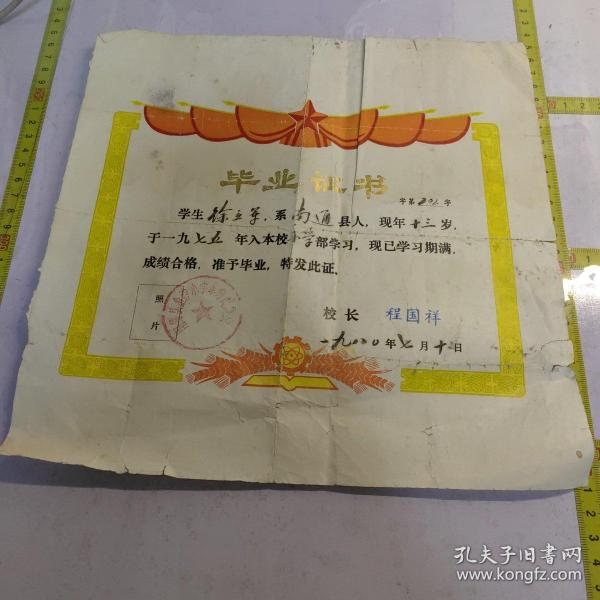 毕业证书
字第201字
学生徐立军，系南通县人，现年十三岁，
于一九七五年入本校小学部学习，现已学习期满，
成绩合格，准予毕业，特发此证。
照
片
校长 程国祥
一九八〇年七月十日
孔夫子旧书网
www.kongfz.com